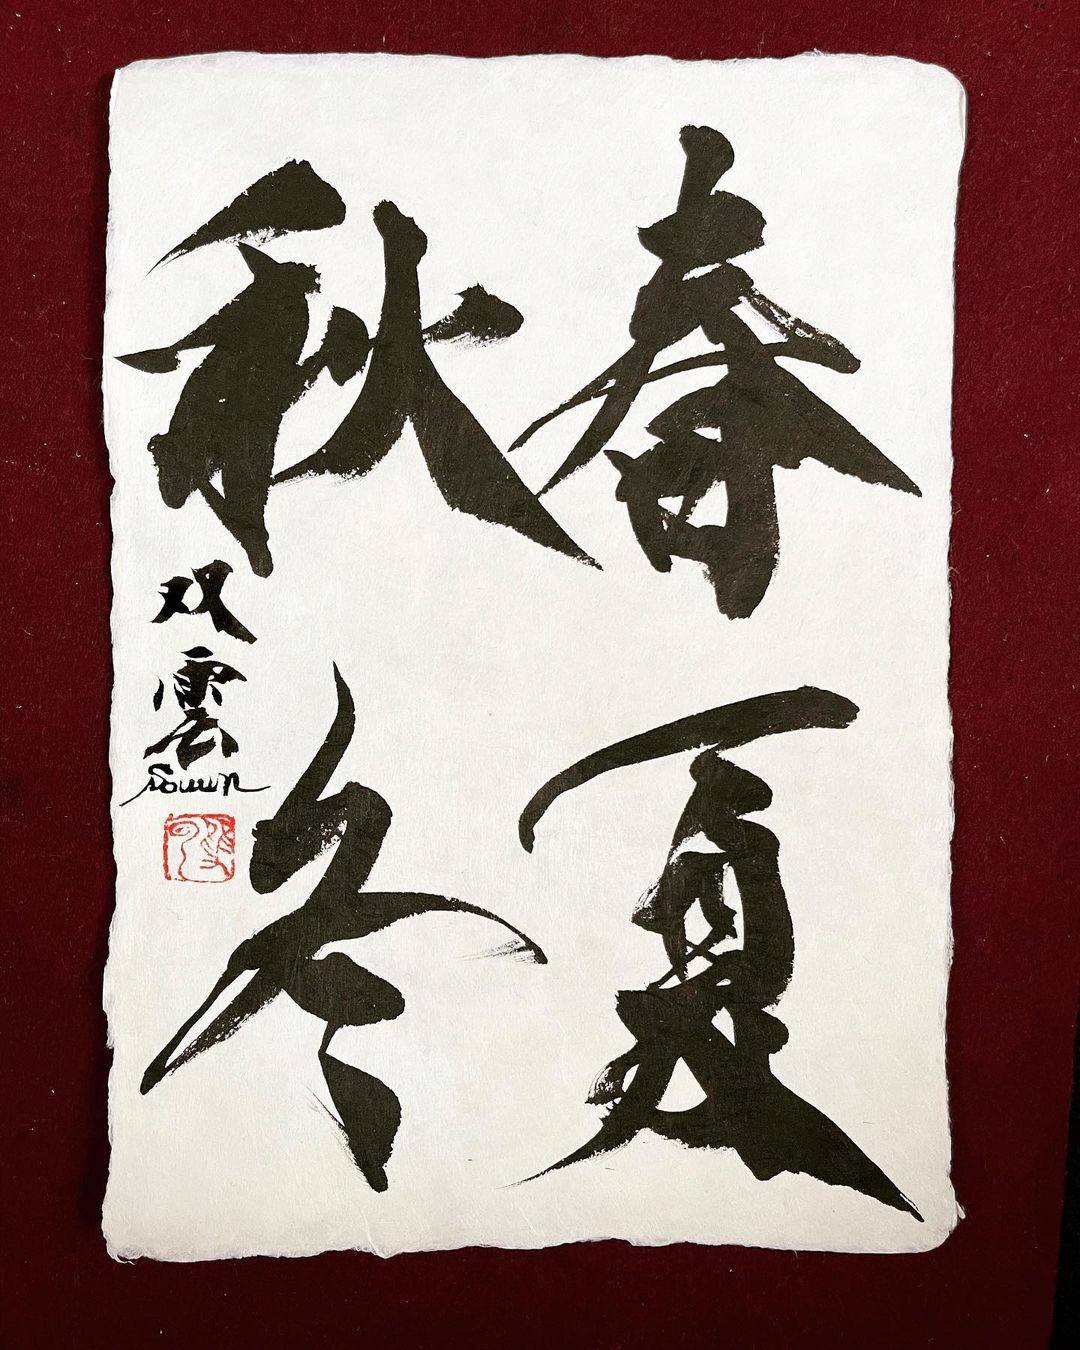 春夏
秋冬
双雲
Souun